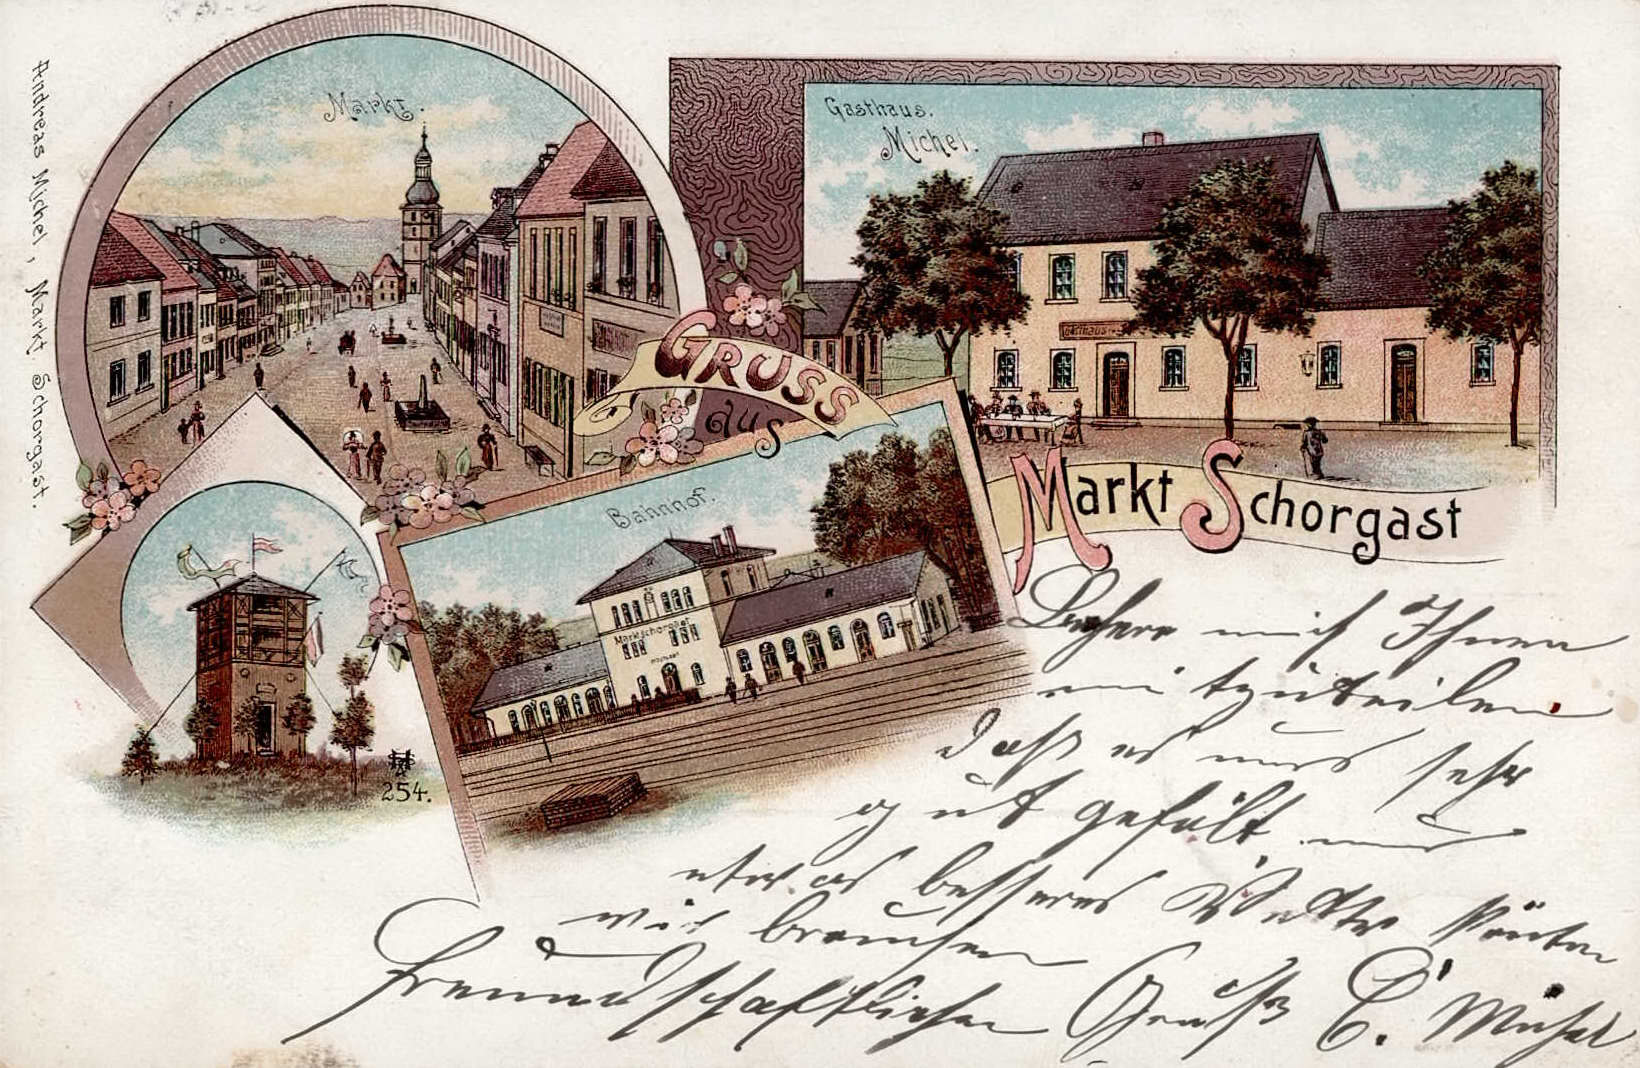 Andreas Michel, Markt Schorgast.
Markt.
Gasthaus.
Michel.
Gasthaus
GRUSS
aus
Markt Schorgast
Bahnhof.
Marktschorgast
254.
mich Ihnen
mitzuteilen
daß es uns sehr
gut gefält nur
etwas besseres Wetter könten
wir brauchen
Freundschaftlichen Gruß C. Michel